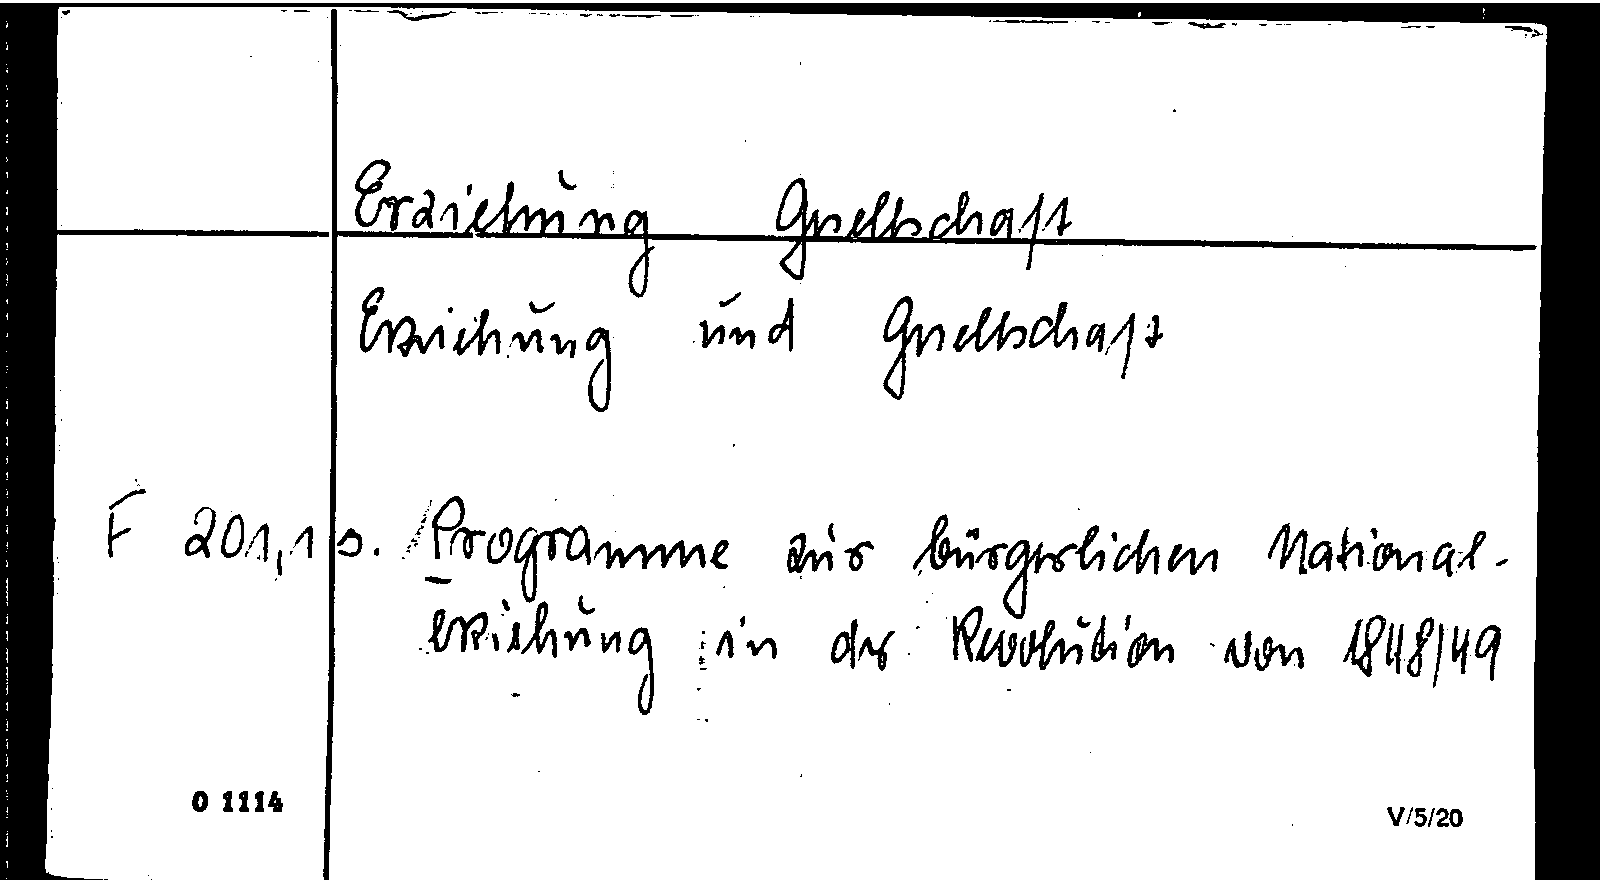 Erziehung Gesellschaft
Erziehung und Gesellschaft
F 201,1 s. Programme zur bürgerlichen National-
erziehung in der Revolution von 1848/49
O 1114
V/5/20